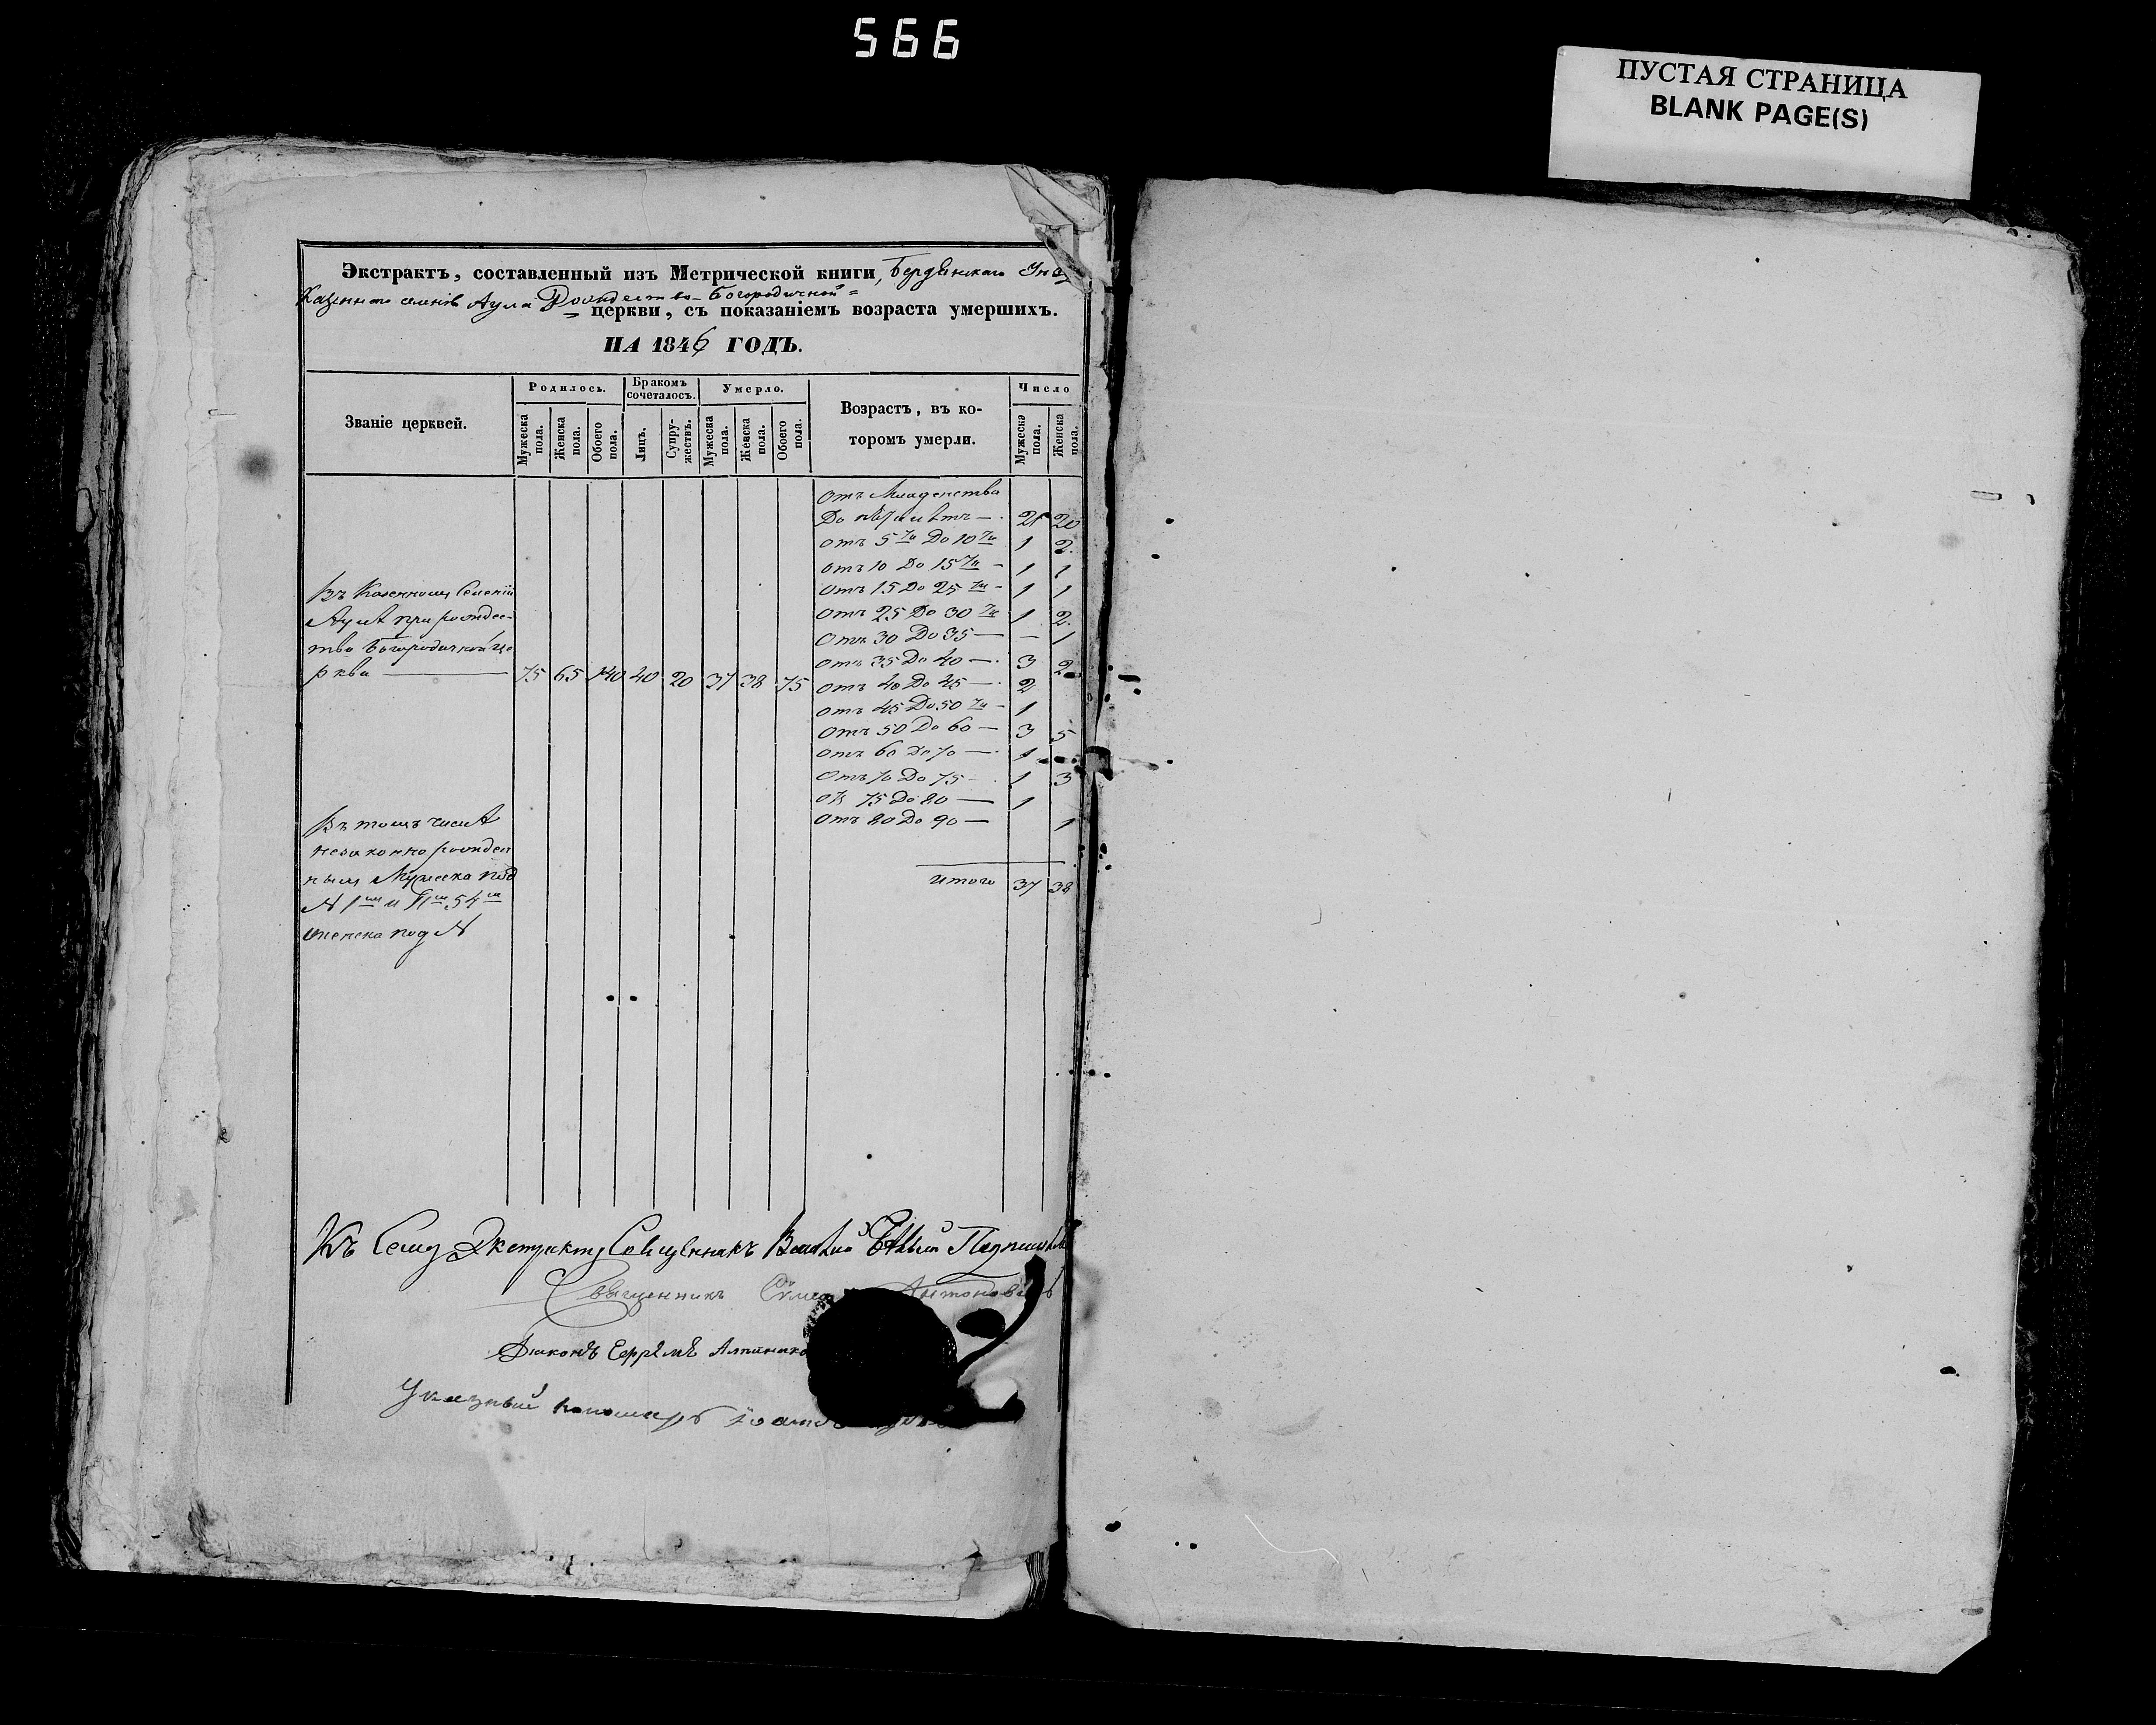 566
ПУСТАЯ СТРАНИЦА
BLANK PAGE(S)
Экстрактъ, составленный изъ Метрической книги, Бердянскаго
Казеннаго селенія Аула Рождество-Богородичной
церкви, съ показаніемъ возраста умершихъ.
НА 1846 ГОДЪ.
Званіе церквей.
Родилось.
Бракомъ сочеталось.
Умерло.
Возрастъ, въ которомъ умерли.
Число
Мужеска пола.
Женска пола.
Обоего пола.
Лицъ.
Супружествъ.
Мужеска пола.
Женска пола.
Обоего пола.
Мужеска пола.
Женска пола.
Въ Казенномъ Селеніи
Аулѣ при рождес-
тво Богородичной це
ркви — 75 65 140 40 20 37 38 75
отъ Младенства
До пяти лѣтъ — 21 20
отъ 5ти До 10ти 1 2
отъ 10 До 15ти — 1 1
отъ 15 До 25ти — 1 1
отъ 25 До 30ти 1 2
отъ 30 До 35 — — 1
отъ 35 До 40 — 3 2
отъ 40 До 45 — 2
отъ 45 До 50ти — 1
отъ 50 До 60 — 3 5
отъ 60 До 70 — 1
отъ 70 До 75 — 1 3
отъ 75 До 80 — 1
отъ 80 До 90 — 1
итого 37 38
Въ томъ числѣ
незаконно рожден
ныхъ Мужеска под
№ 1мъ и 54мъ
женска под №
Къ Сему Экстракту Священникъ
Священникъ Антоновичъ
Діаконъ Ефремъ
Указный пономарь